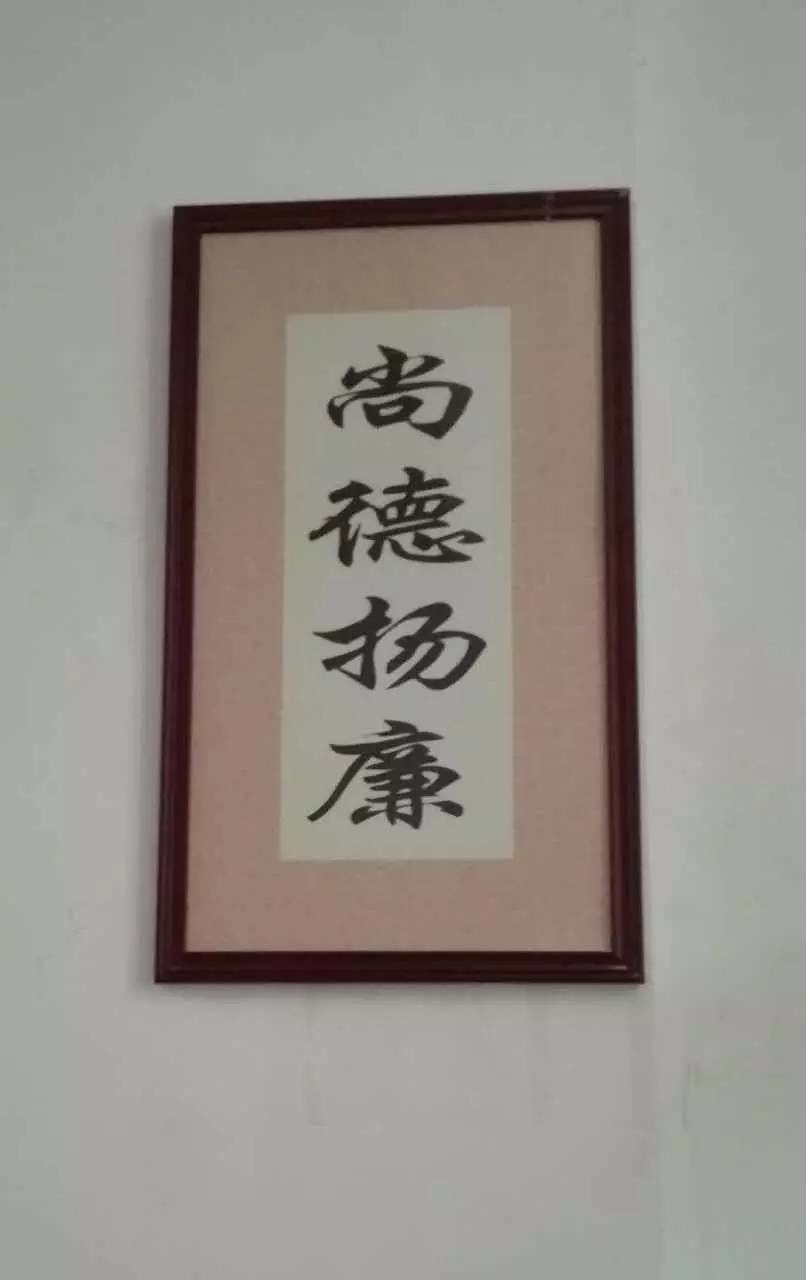 尚德扬廉